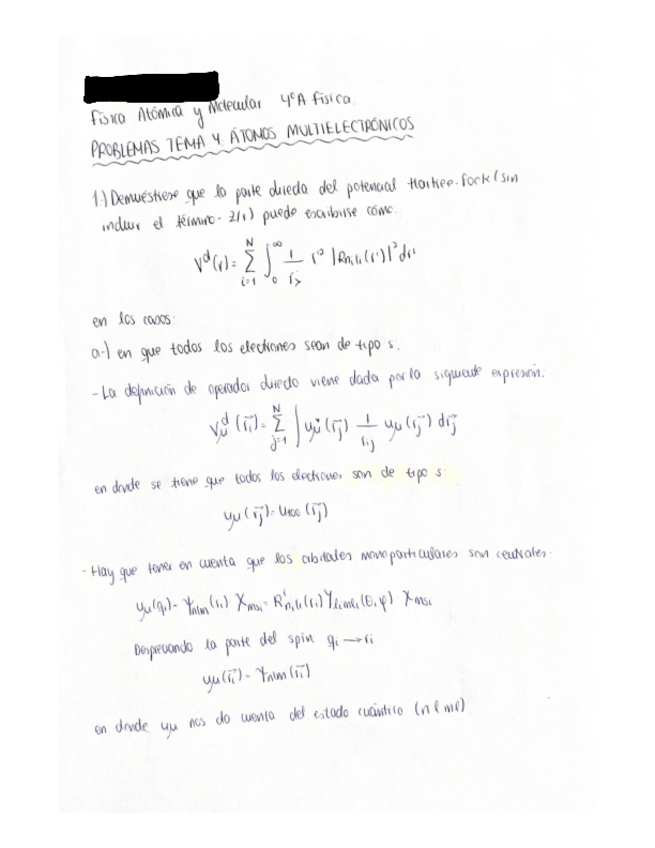 Física Atómica y Molecular 4ºA Física.
PROBLEMAS TEMA 4 ÁTOMOS MULTIELECTRÓNICOS
1.) Demuéstrese que la parte directa del potencial Hartree-Fock (sin
incluir el término - Z/r) puede escribirse cómo.
V^d(r) = Σ_{i=1}^{N} ∫_0^∞ 1/r_> r'^2 |R_{nili}(r')|^2 dr'
en los casos:
a-) en que todos los electrones sean de tipo s.
- La definición de operador directo viene dada por la siguiente expresión:
V_μ^d (r_i) = Σ_{j=1}^{N} ∫ u_μ^* (r_j) 1/r_ij u_μ (r_j) dr_j
en donde se tiene que todos los electrones son de tipo s:
u_μ (r_j) = u_{n00} (r_j)
- Hay que tener en cuenta que los orbitales monoparticulares son centrales.
u_μ(q_i) = Ψ_{nlm} (r_i) χ_{msi} = R^i_{nili}(r_i) Y_{limli} (θ, φ) χ_{msi}
Despreciando la parte del spin q_i → r_i
u_μ(r_i) = Ψ_{nlm} (r_i)
en donde u_μ nos da cuenta del estado cuántico (n l ml)